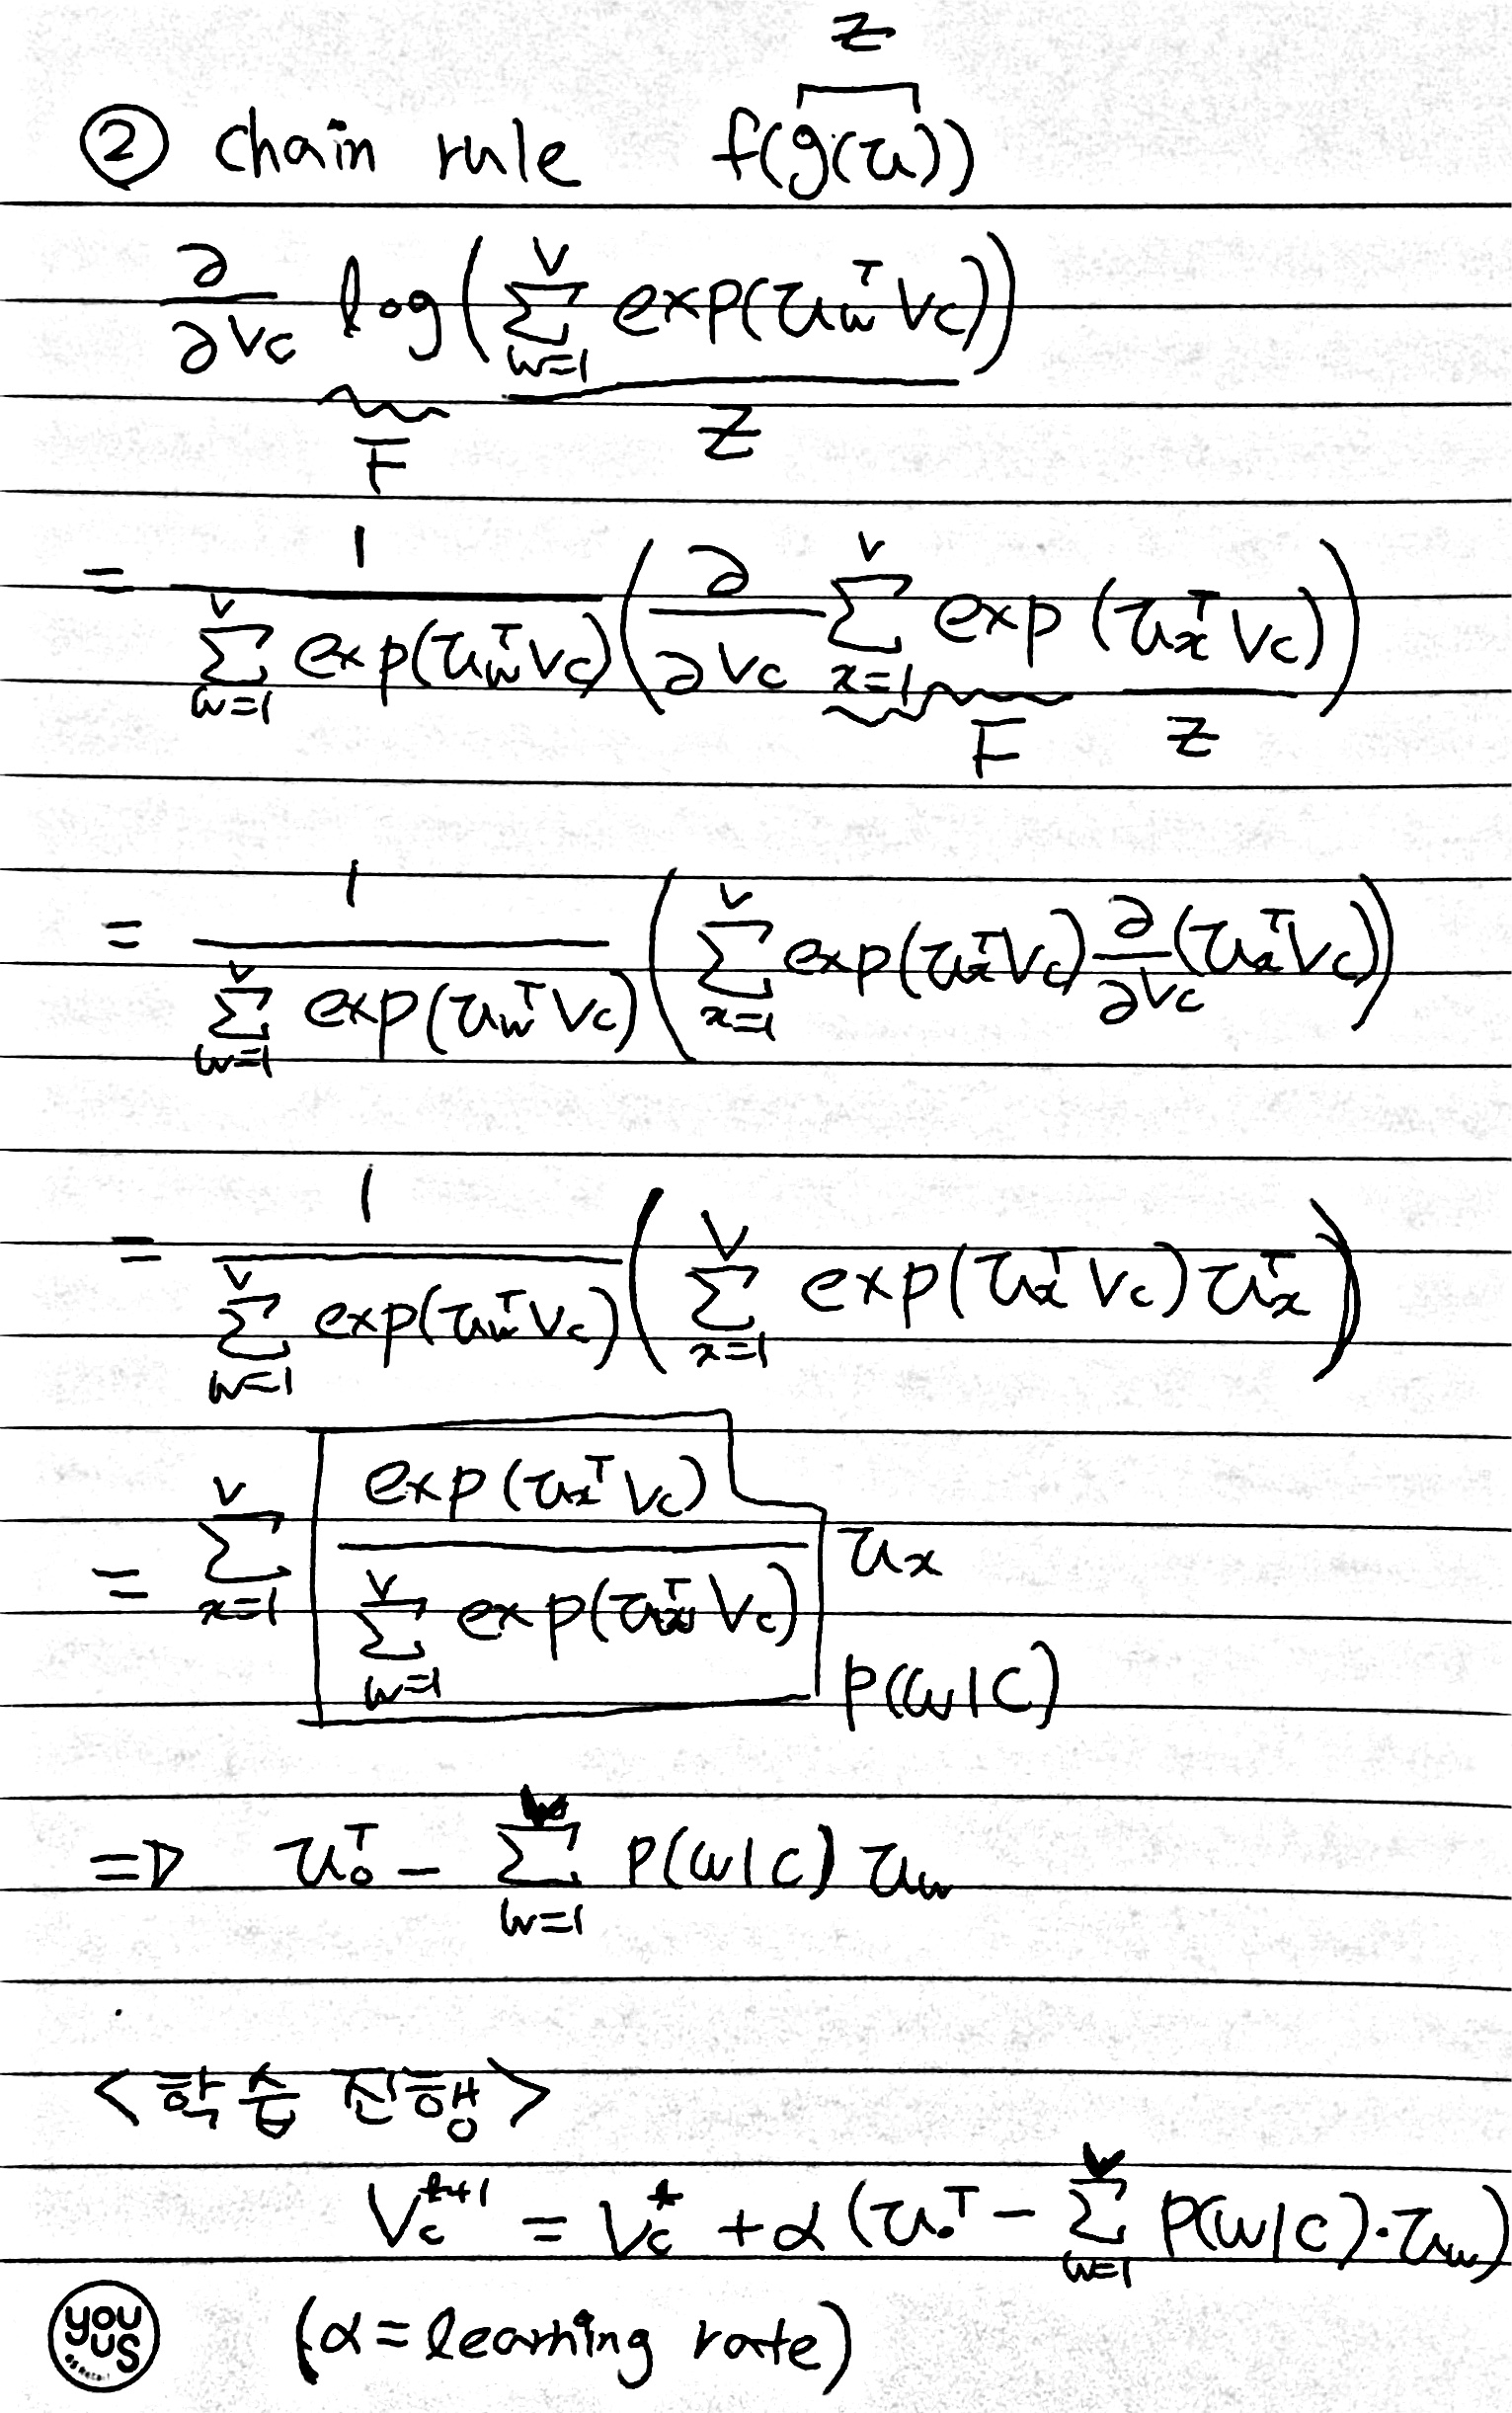 z
② chain rule f(g(u))
∂/∂Vc log(∑_{w=1}^{V} exp(u_w^T Vc))
F z
= 1/(∑_{w=1}^{V} exp(u_w^T Vc)) (∂/∂Vc ∑_{x=1}^{V} exp(u_x^T Vc))
F z
= 1/(∑_{w=1}^{V} exp(u_w^T Vc)) (∑_{x=1}^{V} exp(u_x^T Vc) ∂/∂Vc (u_x^T Vc))
= 1/(∑_{w=1}^{V} exp(u_w^T Vc)) (∑_{x=1}^{V} exp(u_x^T Vc) u_x^T)
= ∑_{x=1}^{V} exp(u_x^T Vc)/(∑_{w=1}^{V} exp(u_w^T Vc)) u_x
P(w|c)
=> u_o^T - ∑_{w=1}^{V} P(w|c) u_w
<학습 진행>
Vc^{t+1} = Vc^t + α(u_o^T - ∑_{w=1}^{V} P(w|c)·u_w)
(α = learning rate)
you us